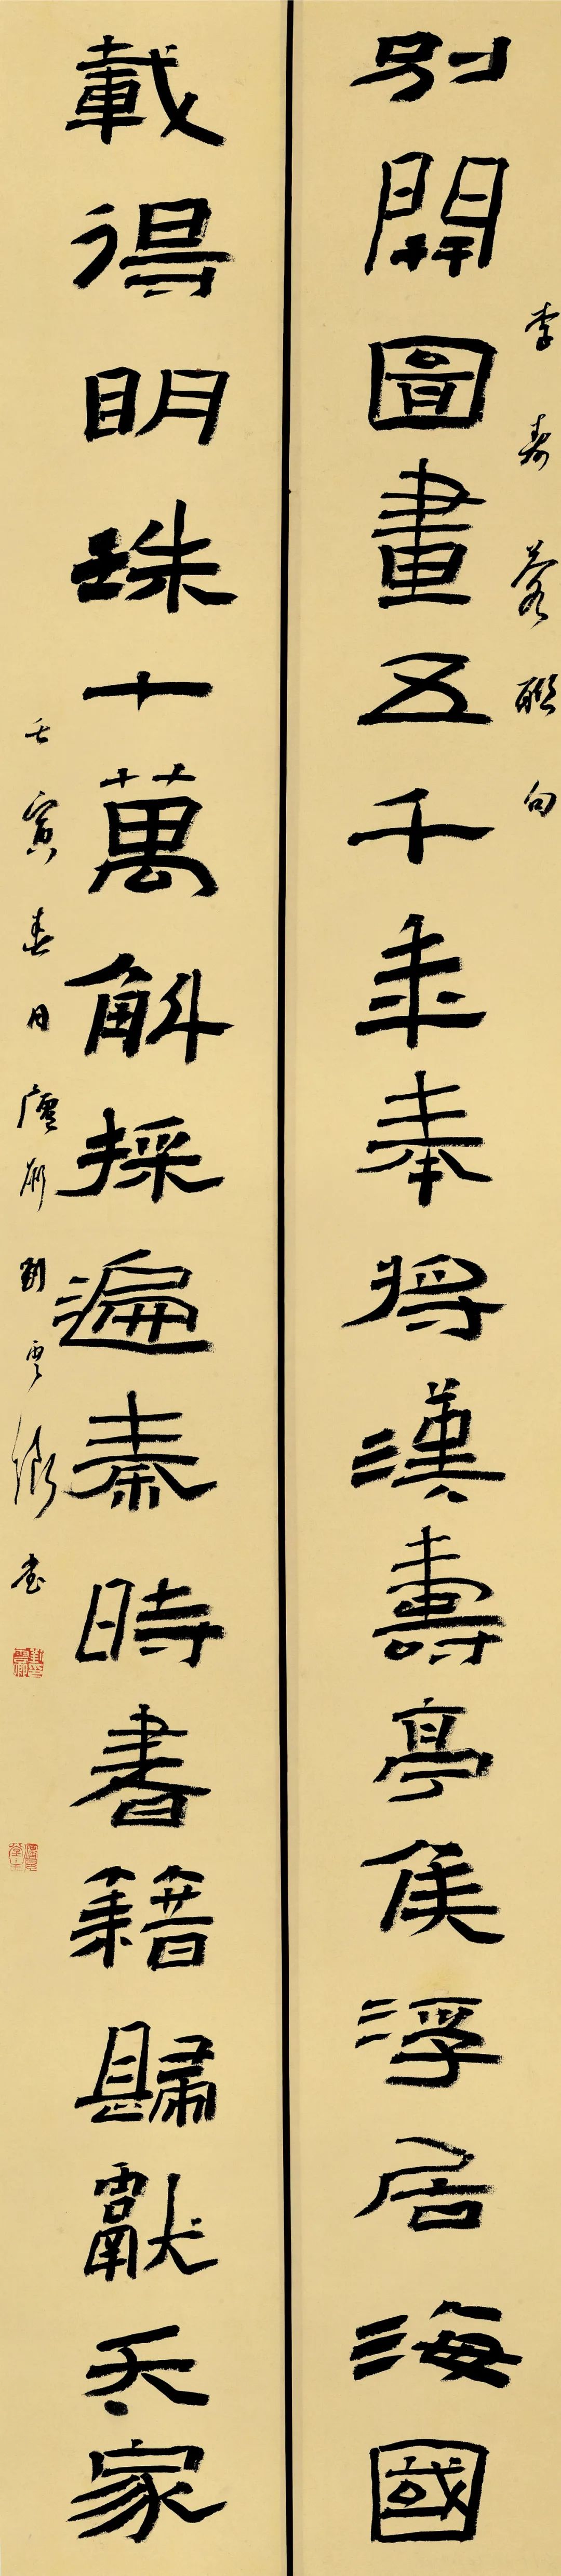 李壽蓉聯句
别開圖畫五千年奉將漢壽亭侯浮居海國
載得明珠十萬斛採遍秦時書籍歸獻天家
壬寅春日廬劉雲書